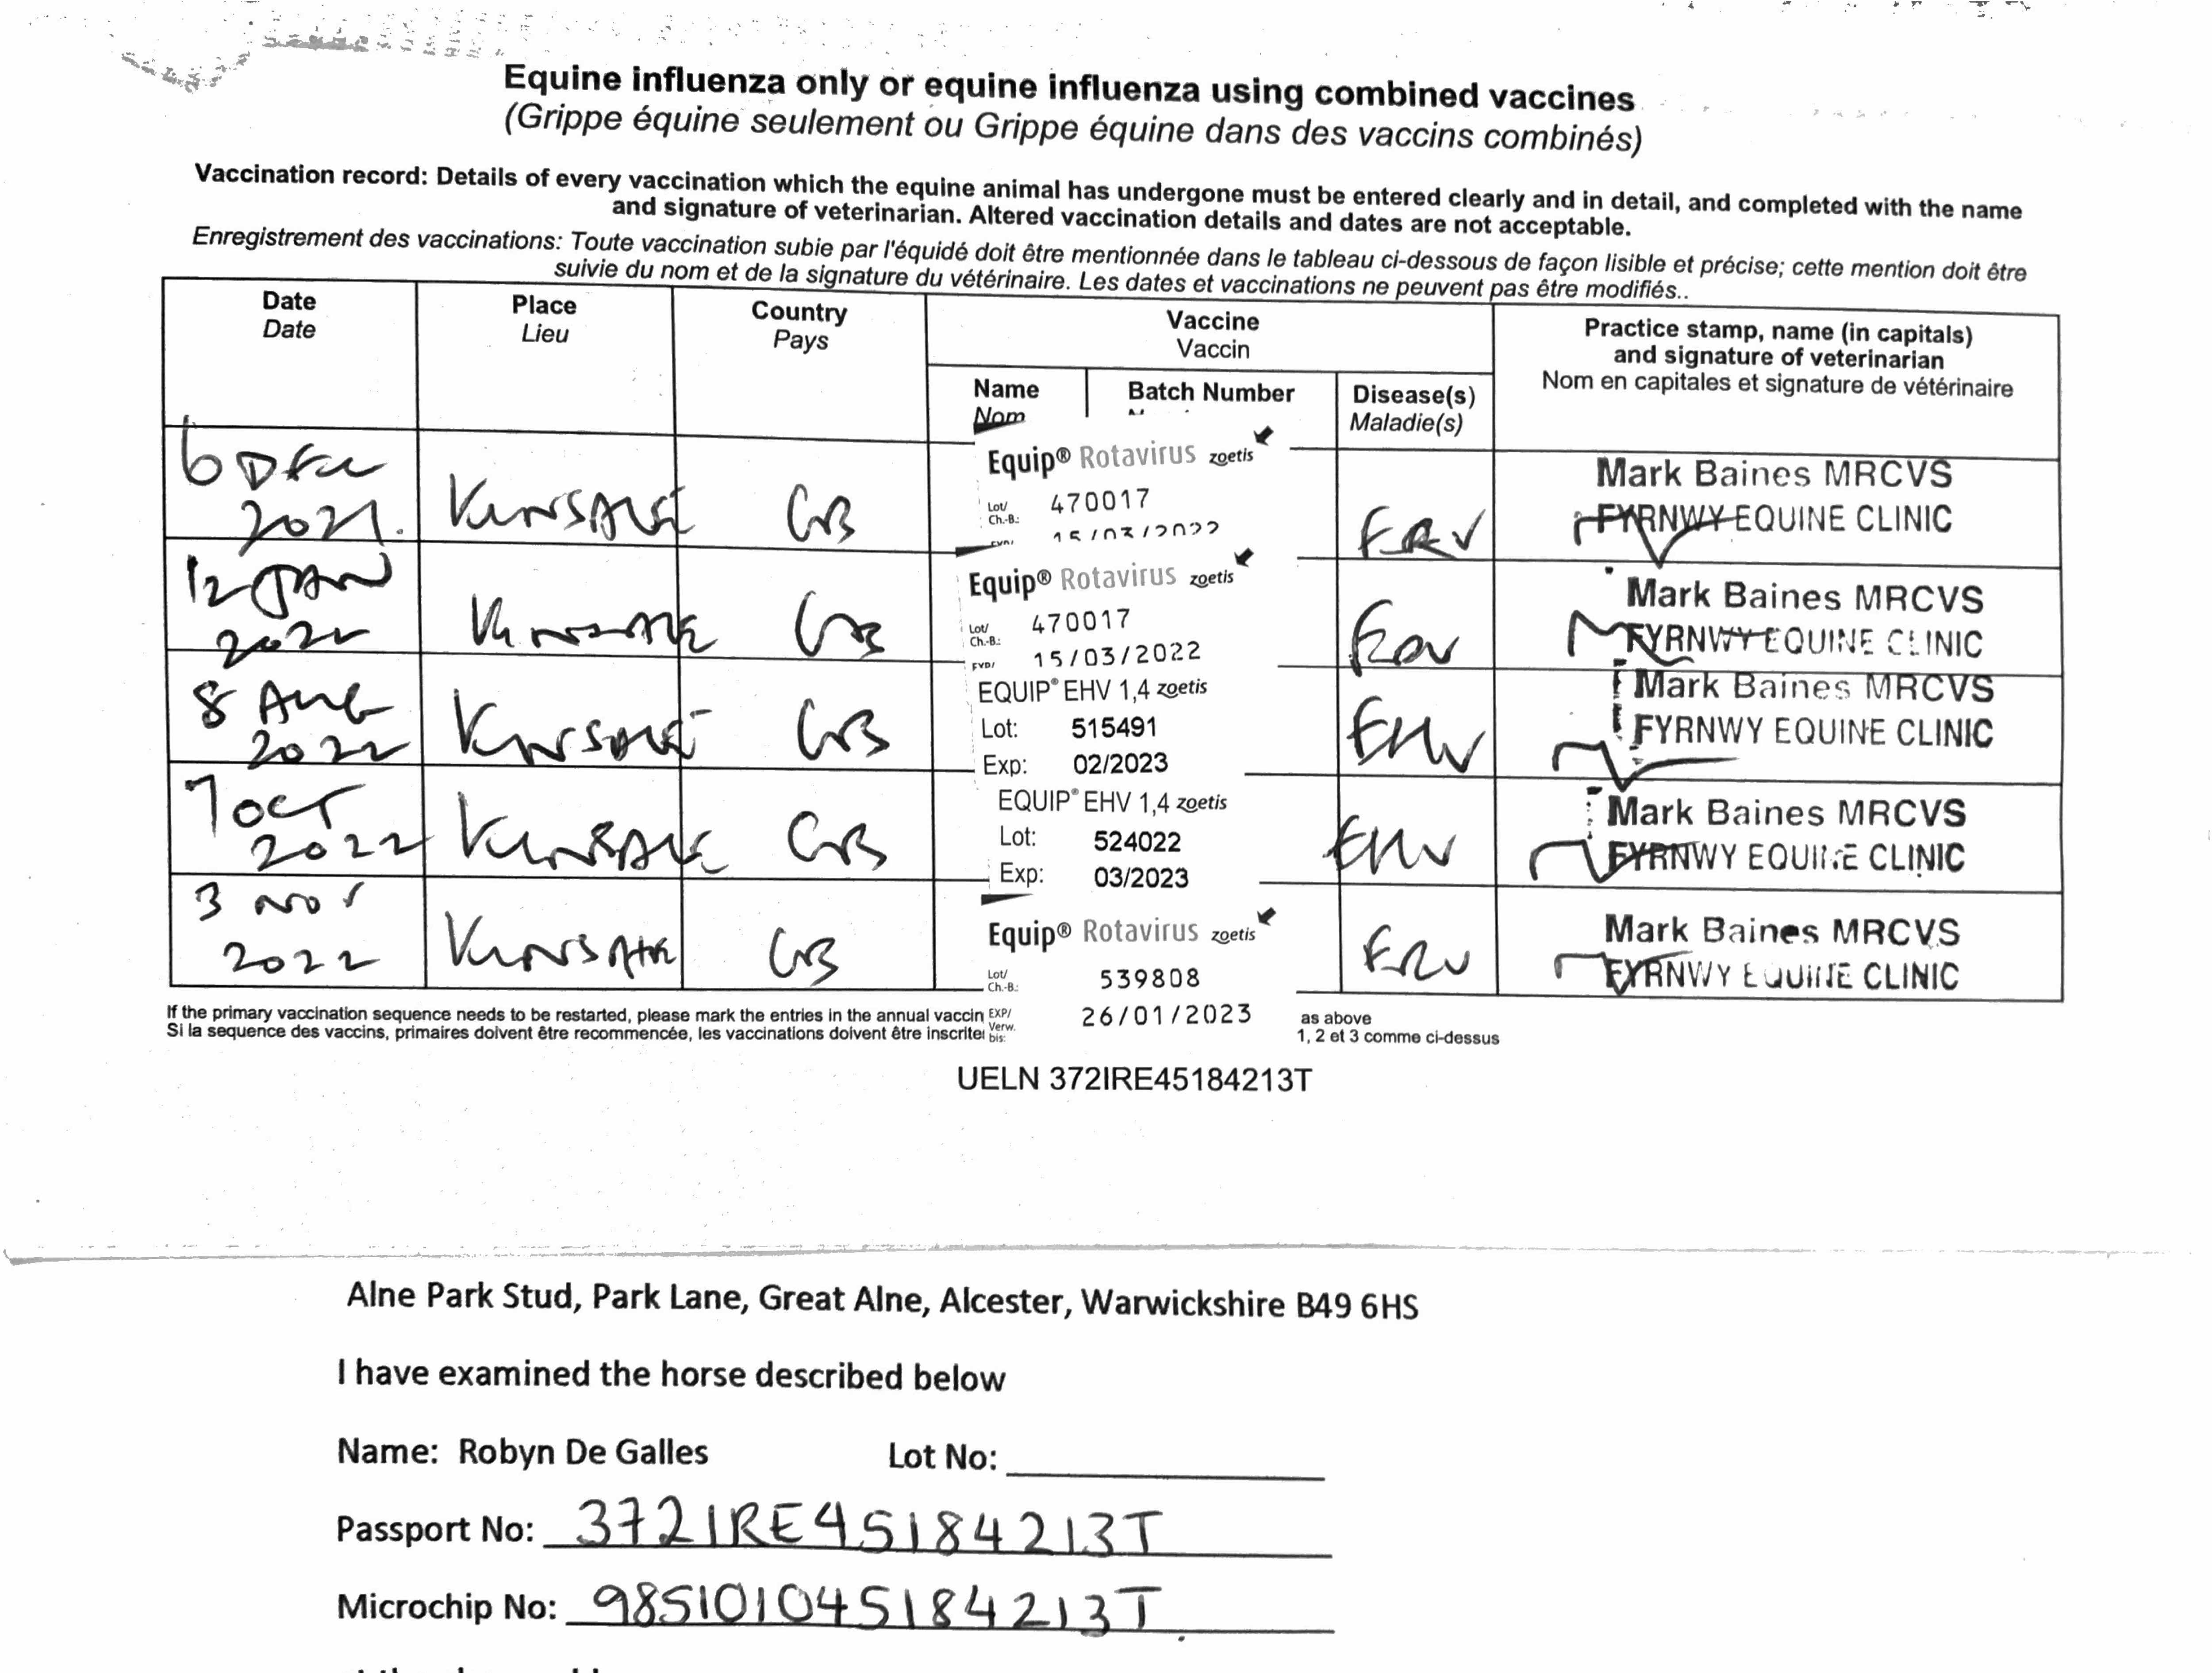 Equine influenza only or equine influenza using combined vaccines
(Grippe équine seulement ou Grippe équine dans des vaccins combinés)
Vaccination record: Details of every vaccination which the equine animal has undergone must be entered clearly and in detail, and completed with the name
and signature of veterinarian. Altered vaccination details and dates are not acceptable.
Enregistrement des vaccinations: Toute vaccination subie par l'équidé doit être mentionnée dans le tableau ci-dessous de façon lisible et précise; cette mention doit être
suivie du nom et de la signature du vétérinaire. Les dates et vaccinations ne peuvent pas être modifiés..
Date
Date
Place
Lieu
Country
Pays
Vaccine
Vaccin
Name
Nom
Batch Number
Disease(s)
Maladie(s)
Practice stamp, name (in capitals)
and signature of veterinarian
Nom en capitales et signature de vétérinaire
6 DEC
2021.
KINSALE
GB
Equip® Rotavirus zoetis
Lot/
Ch.-B.:
470017
15/03/2022
ERV
Mark Baines MRCVS
FYRNWY EQUINE CLINIC
12 JAN
2022
KINSALE
GB
Equip® Rotavirus zoetis
Lot/
Ch.-B.:
470017
15/03/2022
ERV
Mark Baines MRCVS
FYRNWY EQUINE CLINIC
8 AUG
2022
KINSALE
GB
EQUIP® EHV 1,4 zoetis
Lot: 515491
Exp: 02/2023
EHV
Mark Baines MRCVS
FYRNWY EQUINE CLINIC
7 OCT
2022
KINSALE
GB
EQUIP® EHV 1,4 zoetis
Lot: 524022
Exp: 03/2023
EHV
Mark Baines MRCVS
FYRNWY EQUINE CLINIC
3 NOV
2022
KINSALE
GB
Equip® Rotavirus zoetis
Lot/
Ch.-B.:
539808
EXP/
Verw.
bis:
26/01/2023
ERV
Mark Baines MRCVS
FYRNWY EQUINE CLINIC
If the primary vaccination sequence needs to be restarted, please mark the entries in the annual vaccin as above
Si la sequence des vaccins, primaires doivent être recommencée, les vaccinations doivent être inscrite 1, 2 et 3 comme ci-dessus
UELN 372IRE45184213T
Alne Park Stud, Park Lane, Great Alne, Alcester, Warwickshire B49 6HS
I have examined the horse described below
Name: Robyn De Galles Lot No:
Passport No: 372IRE45184213T
Microchip No: 985101045184213T